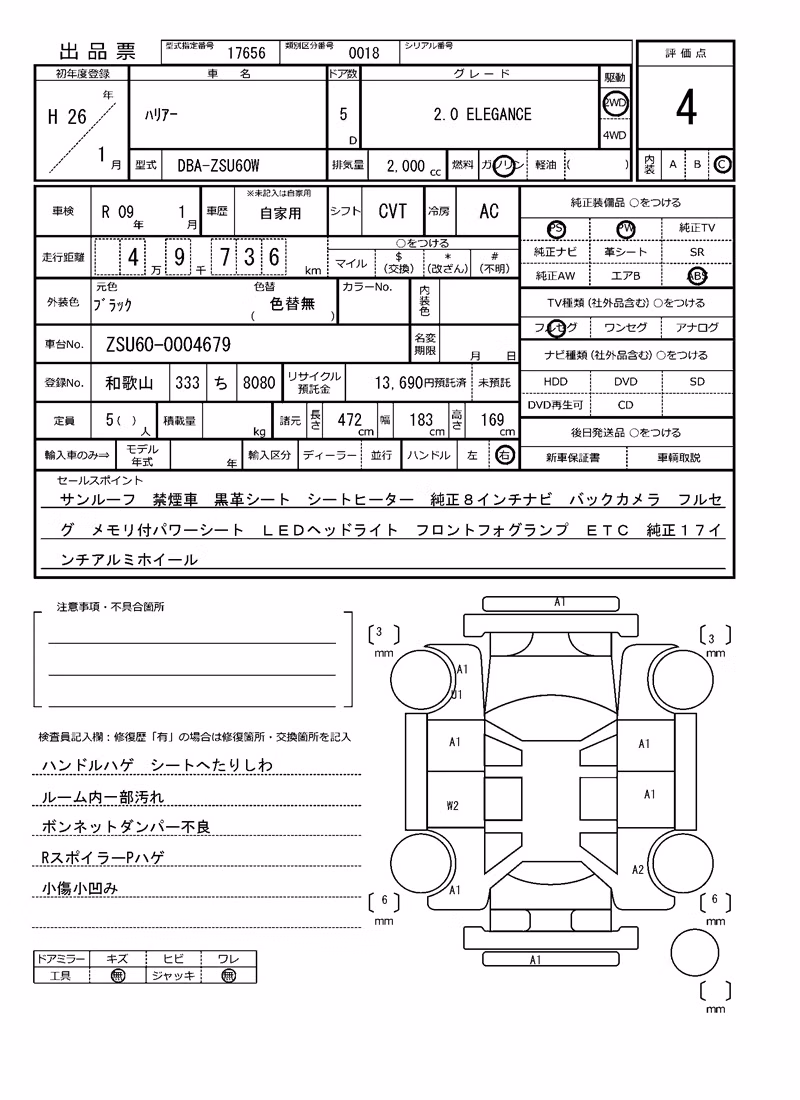 出品票
型式指定番号 17656 類別区分番号 0018 シリアル番号
初年度登録 車名 ドア数 グレード 駆動 評価点
H 26 年 1 月 ﾊﾘｱｰ 5 D 2.0 ELEGANCE 2WD 4WD 4
型式 DBA-ZSU60W 排気量 2,000 cc 燃料 ガソリン 軽油 ( ) 内装 A B C
車検 R 09 年 1 月 車歴 ※未記入は自家用 自家用 シフト CVT 冷房 AC
純正装備品 ○をつける
PS PW 純正TV
純正ナビ 革シート SR
純正AW エアB ABS
走行距離 4 万 9 千 7 3 6 km ○をつける マイル $ (交換) * (改ざん) # (不明)
外装色 元色 ﾌﾞﾗｯｸ 色替 色替無 ( ) カラーNo. 内装色
TV種類(社外品含む)○をつける
フルセグ ワンセグ アナログ
車台No. ZSU60-0004679 名変期限 月 日
ナビ種類(社外品含む)○をつける
HDD DVD SD
DVD再生可 CD
登録No. 和歌山 333 ち 8080 リサイクル預託金 13,690円預託済 未預託
定員 5( ) 人 積載量 kg 諸元 長さ 472 cm 幅 183 cm 高さ 169 cm
後日発送品 ○をつける
新車保証書 車輌取説
輸入車のみ⇒ モデル年式 年 輸入区分 ディーラー 並行 ハンドル 左 右
セールスポイント
サンルーフ 禁煙車 黒革シート シートヒーター 純正8インチナビ バックカメラ フルセ
グ メモリ付パワーシート LEDヘッドライト フロントフォグランプ ETC 純正17イ
ンチアルミホイール
注意事項・不具合箇所
検査員記入欄:修復歴「有」の場合は修復箇所・交換箇所を記入
ハンドルハゲ シートへたりしわ
ルーム内一部汚れ
ボンネットダンパー不良
RスポイラーPハゲ
小傷小凹み
ドアミラー キズ ヒビ ワレ
工具 無 ジャッキ 無
A1
3 mm 3 mm
A1
U1
A1 A1
W2 A1
A1 A2
6 mm 6 mm
A1
mm